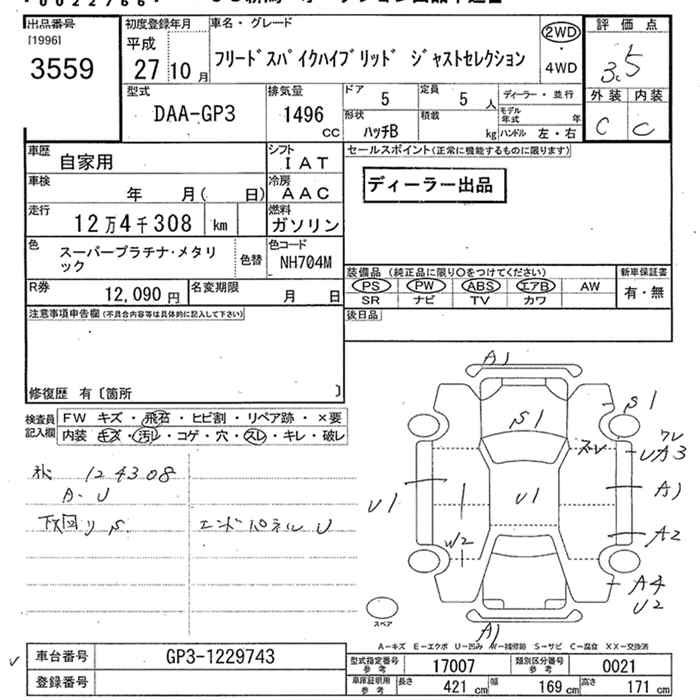 出品番号
[1996]
3559
初度登録年月
平成
27 10 月
車名・グレード
フリードスパイクハイブリッド ジャストセレクション
2WD
4WD
評価点
3.5
外装 内装
C C
型式
DAA-GP3
排気量
1496
CC
ドア
5
定員
5 人
形状
ハッチB
積載
kg
ディーラー・並行
モデル年式 年
ハンドル 左・右
車歴
自家用
シフト
IAT
車検
年 月( 日)
冷房
AAC
走行
12万4千308 km
燃料
ガソリン
色
スーパープラチナ・メタリック
色替
色コード
NH704M
R券
12,090 円
名変期限
月 日
セールスポイント(正常に機能するものに限ります)
ディーラー出品
装備品 (純正品に限り○をつけてください)
PS PW ABS エアB AW
SR ナビ TV カワ
新車保証書
有・無
後日品
注意事項申告欄 (不具合内容等は具体的に記入して下さい)
修復歴 有〔箇所 〕
検査員記入欄
FW キズ・飛石・ヒビ割・リペア跡・×要
内装 キズ・汚レ・コゲ・穴・スレ・キレ・破レ
124308
A・U
下回り S
エンドパネル U
A1
S1
S1
スレ
ワレ
UA3
U1
U1
A1
A2
W2
A4
U2
A1
スペア
A-キズ E-エクボ U-凹み W-補修跡 S-サビ C-腐食 XX-交換済
車台番号
GP3-1229743
登録番号
型式指定番号 参考
17007
類別区分番号 参考
0021
車庫証明用 参考
長さ 421 cm
幅 169 cm
高さ 171 cm